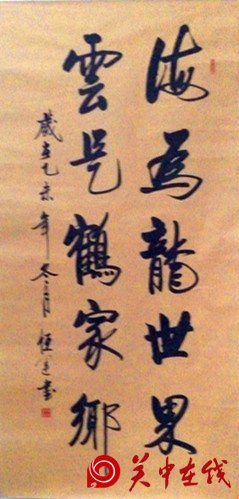 海為龍世界
雲是鶴家鄉
歲在乙未年冬月
关中在线